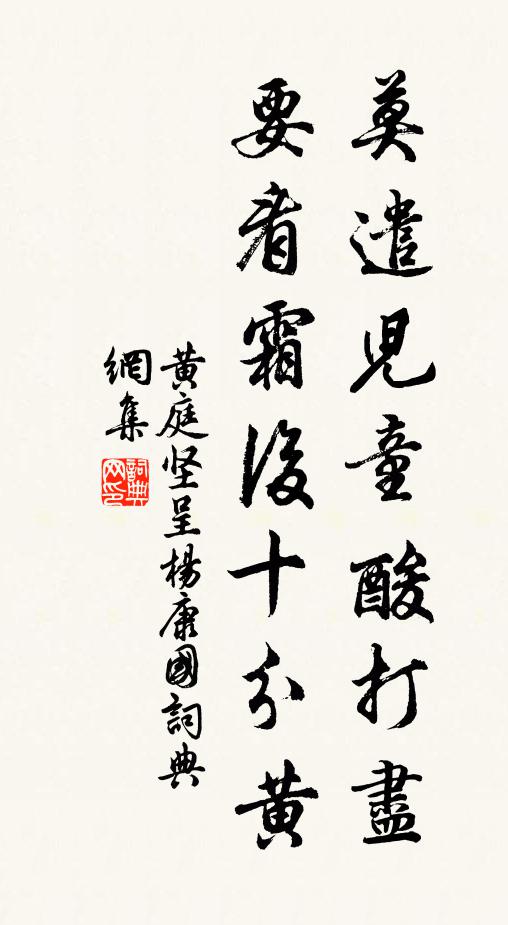 莫遣兒童酸打盡
要看霜後十分黃
黃庭坚呈楊康國詞典
網集
詞典
网印